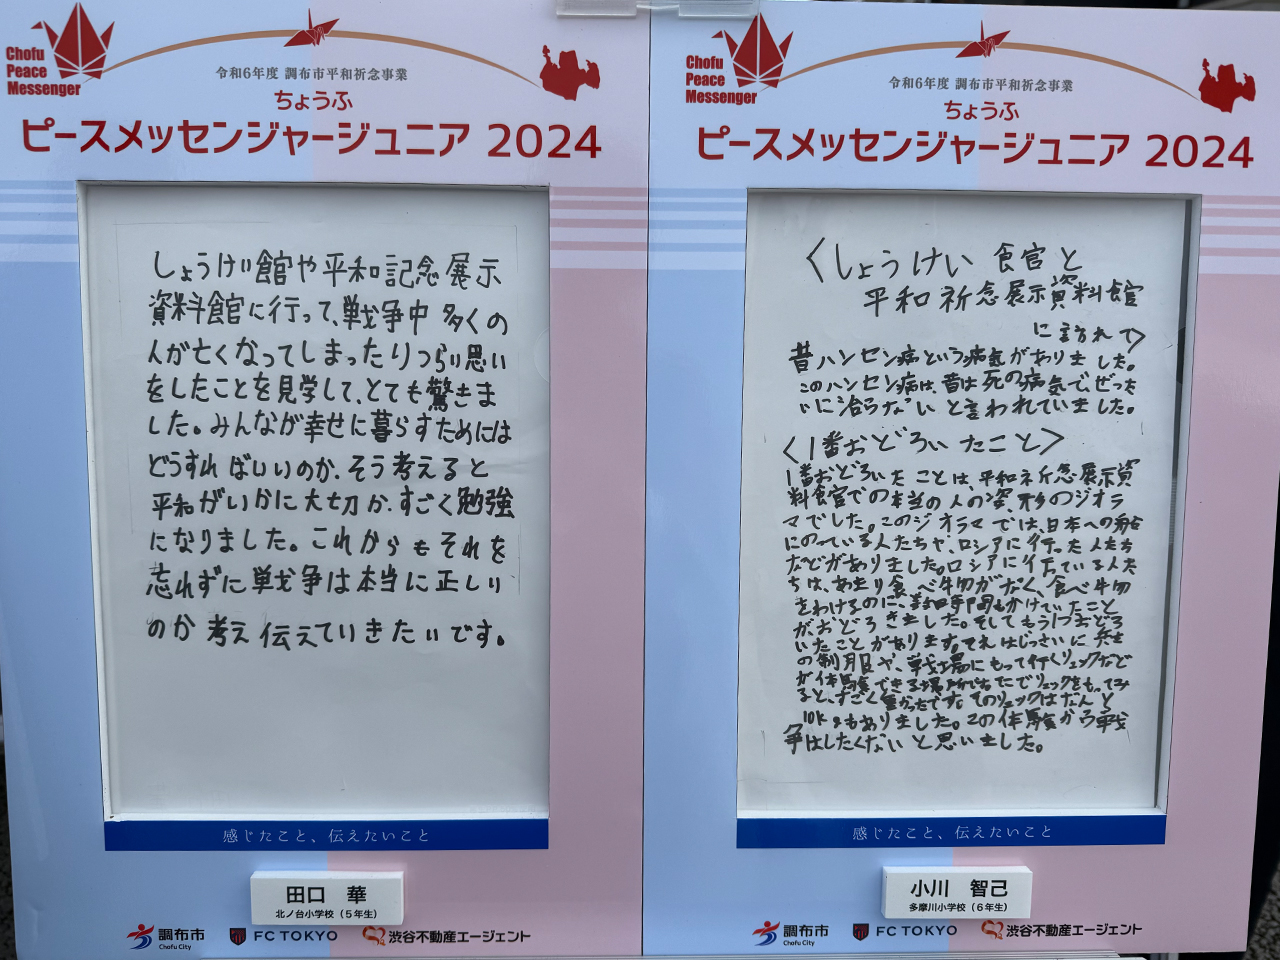 Chofu
Peace
Messenger
令和6年度 調布市平和祈念事業
ちょうふ
ピースメッセンジャージュニア 2024
しょうけい館や平和記念展示
資料館に行って、戦争中 多くの
人が亡くなってしまったりつらい思い
をしたことを見学して、とても驚きま
した。みんなが幸せに暮らすためには
どうすればいいのか、そう考えると
平和がいかに大切か、すごく勉強
になりました。これからもそれを
忘れずに戦争は本当に正しい
のか考え伝えていきたいです。
感じたこと、伝えたいこと
田口 華
北ノ台小学校（5年生）
調布市
Chofu City
FC TOKYO
渋谷不動産エージェント
Chofu
Peace
Messenger
令和6年度 調布市平和祈念事業
ちょうふ
ピースメッセンジャージュニア 2024
〈しょうけい館と
平和祈念展示資料館
に訪れて〉
昔ハンセン病という病気がありました。
このハンセン病は、昔は死の病気で、ぜった
いに治らないと言われていました。
〈1番おどろいたこと〉
1番おどろいたことは、平和祈念展示資
料館での本当の人の姿、形のジオラ
マでした。このジオラマでは、日本への船
にのっている人たちや、ロシアに行った人たち
などがありました。ロシアに行っている人た
ちは、あまり食べ物がなく、食べ物
をわけるのに、長時間もかけていたこと
が、おどろきました。そしてもう1つおどろ
いたことがあります。それはじっさいに兵士
の制服や、戦場にもって行くリュックなど
が体験できる場所で
リュックをもってみ
ると、すごく重かったです。そのリュックはなんと
10kgもありました。この体験から戦
争はしたくないと思いました。
感じたこと、伝えたいこと
小川 智己
多摩川小学校（6年生）
調布市
Chofu City
FC TOKYO
渋谷不動産エージェント